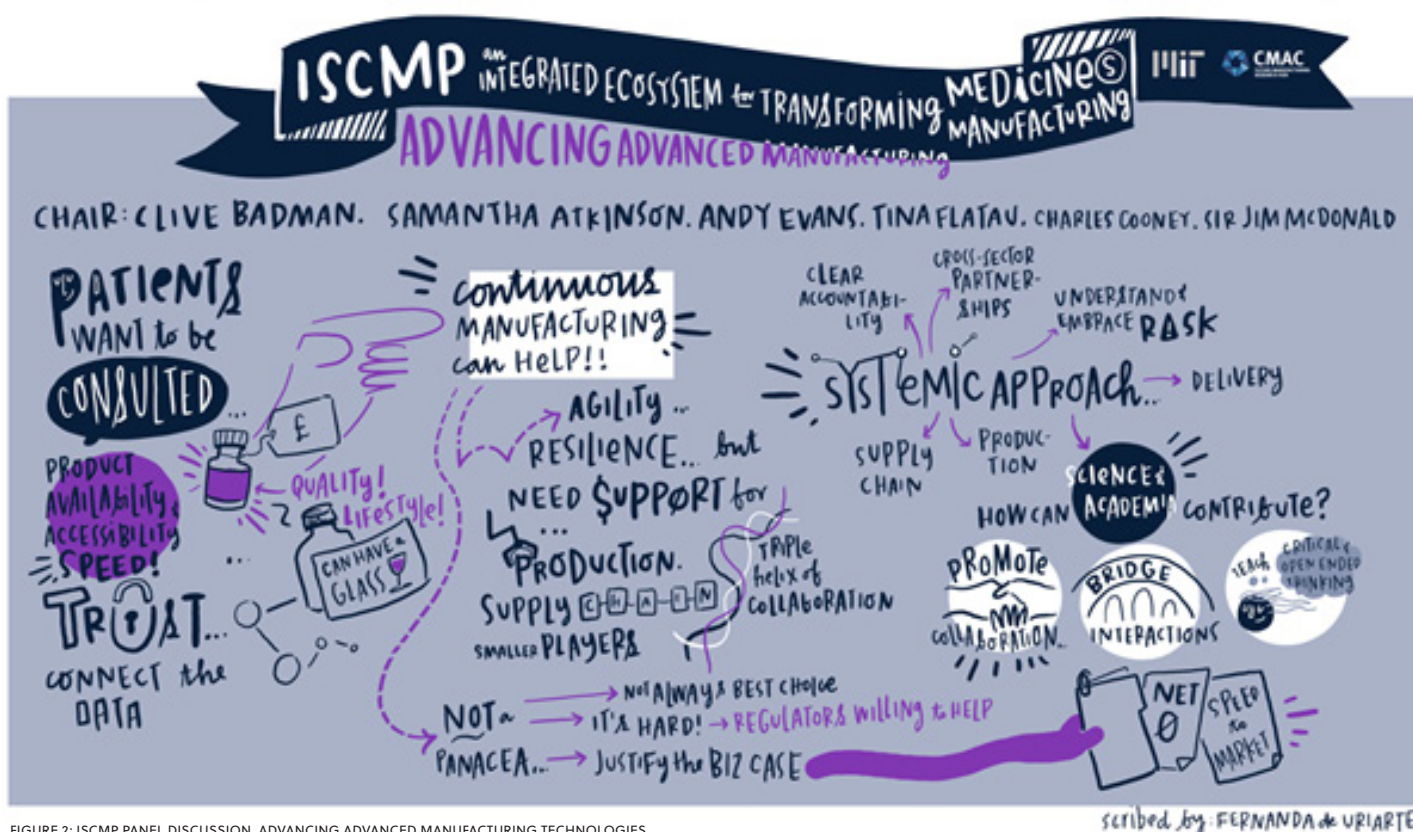 ISCMP an INTEGRATED ECOSYSTEM for TRANSFORMING MEDICINES MANUFACTURING
MIT
CMAC
ADVANCING ADVANCED MANUFACTURING
CHAIR: CLIVE BADMAN. SAMANTHA ATKINSON. ANDY EVANS. TINA FLATAU. CHARLES COONEY. SIR JIM McDONALD
PATIENTS
WANT to be
CONSULTED...
£
PRODUCT
AVAILABILITY &
ACCESSIBILITY
SPEED!
QUALITY!
LIFESTYLE!
CAN HAVE a
GLASS
...
TRUST...
CONNECT the
DATA
continuous
MANUFACTURING
can HELP!!
AGILITY...
RESILIENCE... but
NEED $UPPORT for
...
PRODUCTION.
SUPPLY CHAIN
SMALLER PLAYERS
TRIPLE
helix of
COLLABORATION
NOT a
PANACEA...
NOT ALWAYS BEST CHOICE
IT'S HARD! → REGULATORS WILLING to HELP
JUSTIFY the BIZ CASE
CLEAR
ACCOUNTABI-
LITY
CROSS-SECTOR
PARTNER-
SHIPS
UNDERSTAND &
EMBRACE RISK
SYSTEMIC APPROACH... → DELIVERY
SUPPLY
CHAIN
PRODUC-
TION
SCIENCE &
HOW CAN ACADEMIA CONTRIBUTE?
PROMOTE
COLLABORATION...
BRIDGE
INTERACTIONS
TEACH
CRITICAL &
OPEN ENDED
THINKING
NET
0
SPEED
to
MARKET
scribed by: FERNANDA de URIARTE
FIGURE 2: ISCMP PANEL DISCUSSION, ADVANCING ADVANCED MANUFACTURING TECHNOLOGIES